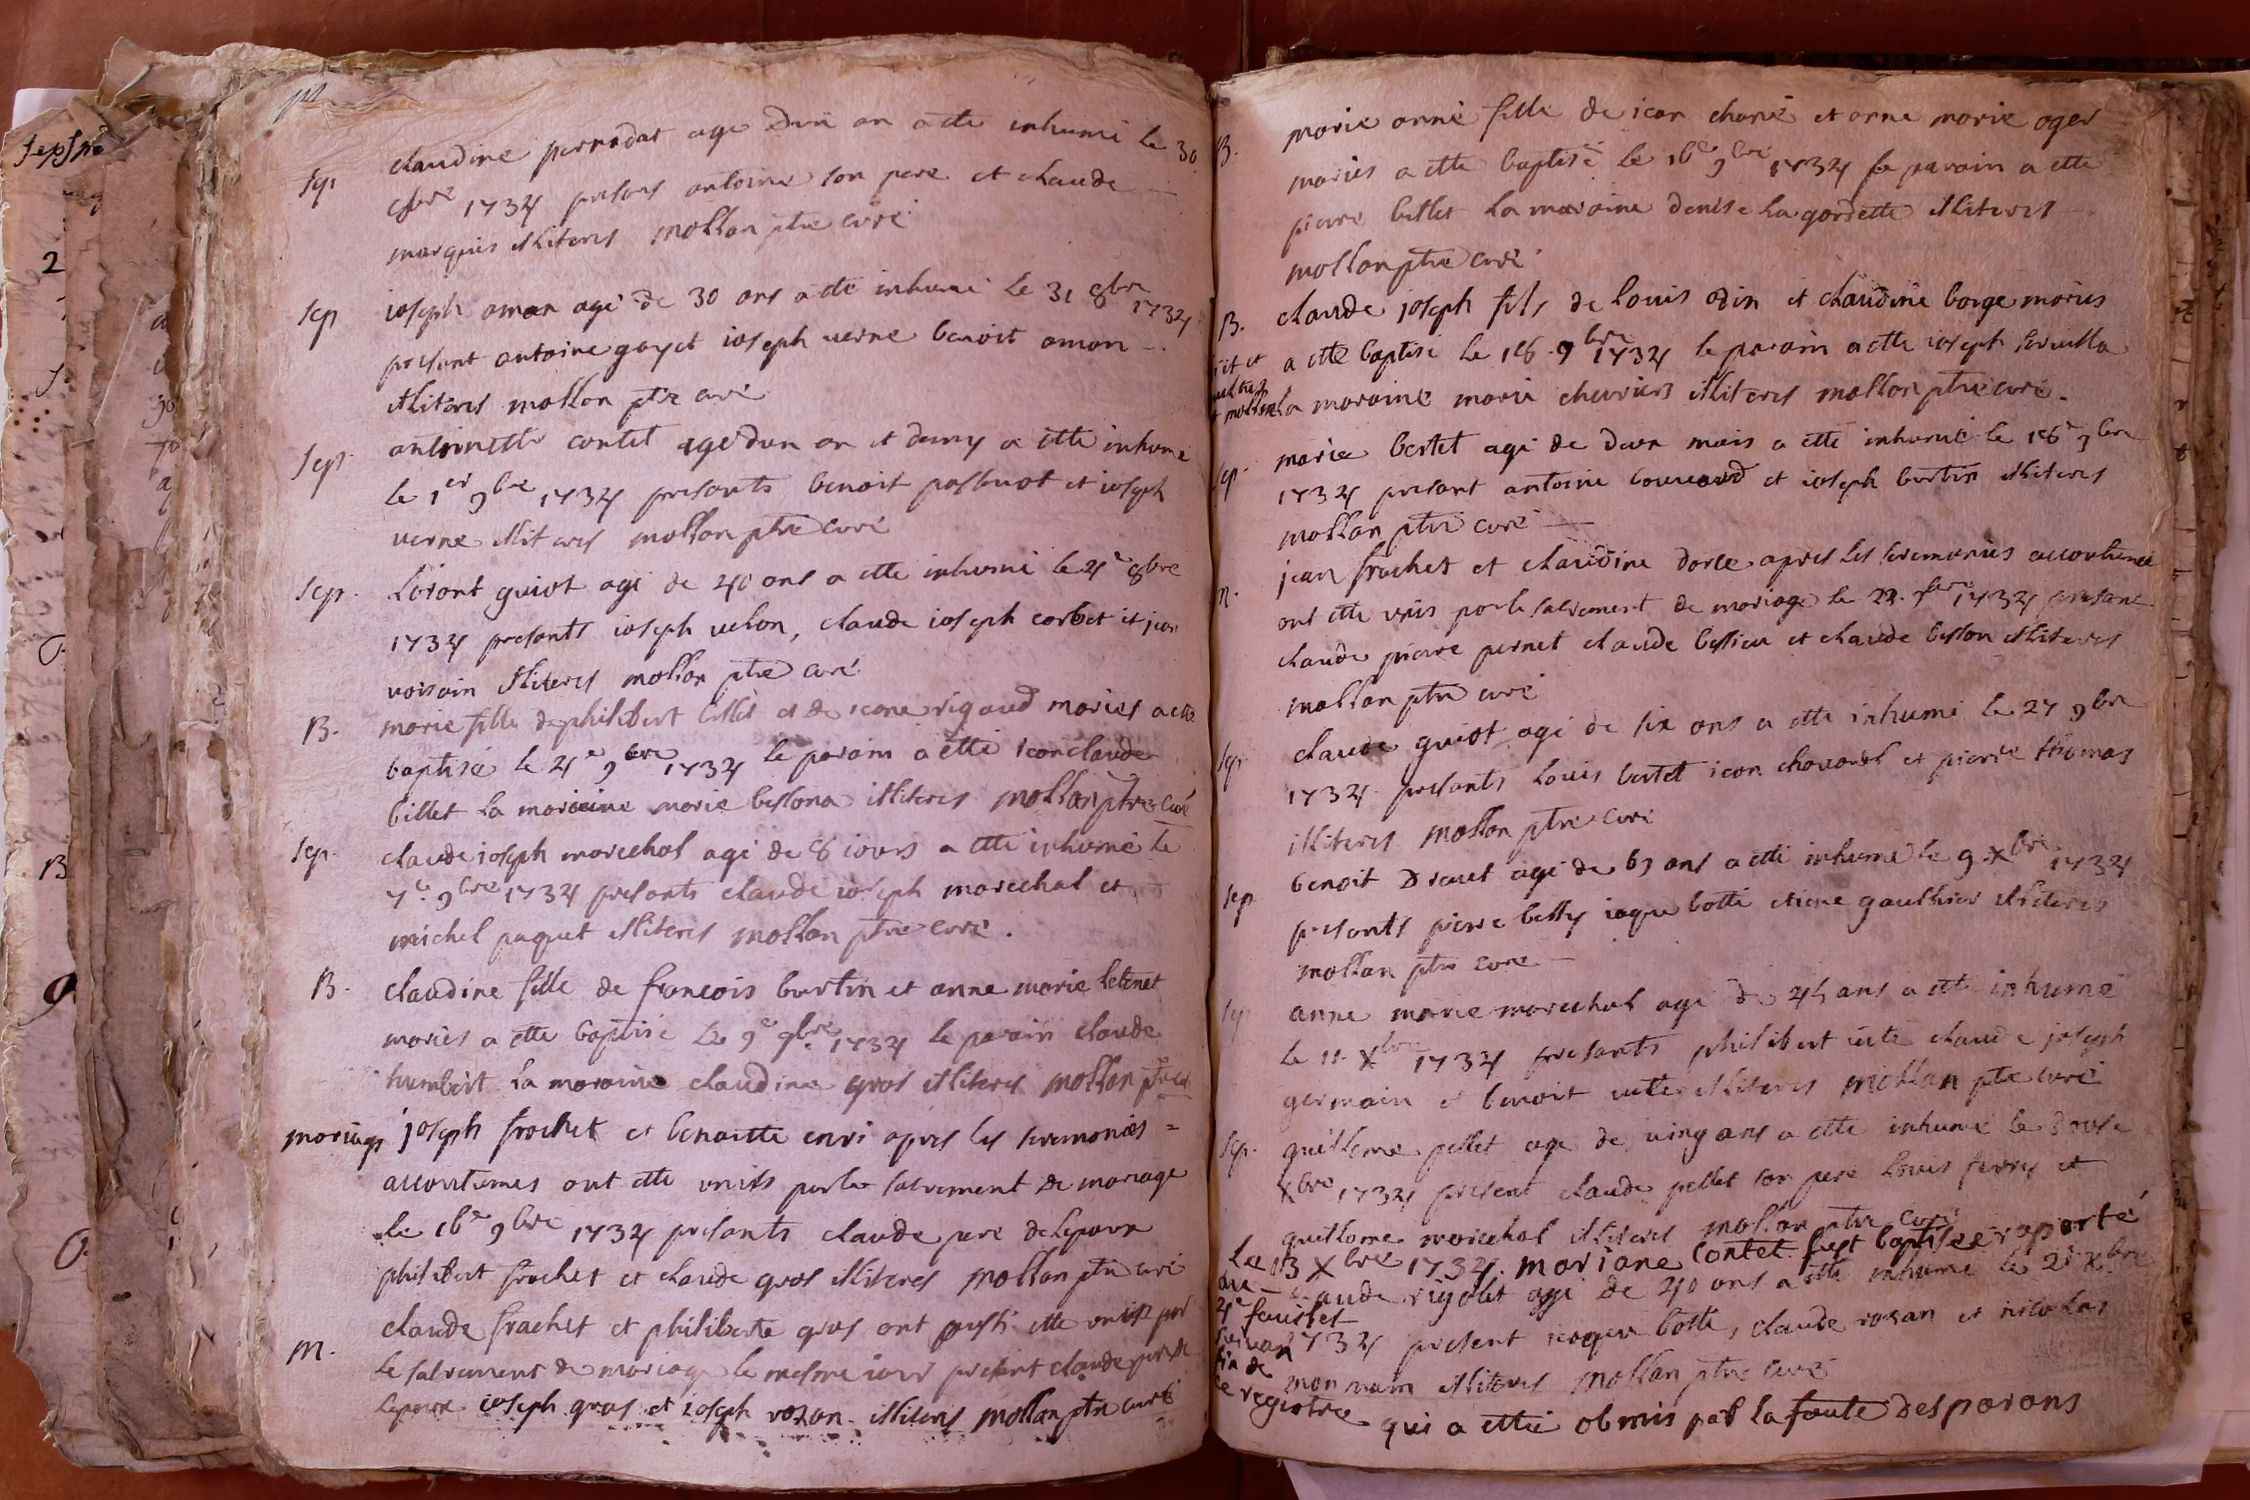 Sep claudine pernodat age Dun an a ete inhumé le 30
8bre 1734 presans antoine son pere et claude
marquis illiteres mollan ptre curé
Sep ioseph aman agé de 30 ans a eté inhumé le 31 8bre 1734
presant antoine gayet ioseph verne benoit aman
illiteres mollan ptre curé
Sep. antoinette contet agé dun an et demy a etté inhumé
le 1er 9bre 1734 presants benoit et ioseph
verne illiteres mollan ptre curé
Sep. lorant guiot agé de 40 ans a etté inhumé le 4e 8bre
1734 presants ioseph velon, claude ioseph corbet et jean
voisain illiteres mollan ptre curé
B. marie fille de philibert billet et de icane rigaud mariés a etté
baptisé le 4e 9bre 1734 le parain a etté ican claude
billet la maraine marie bessona illiteres mollan ptre curé
Sep. claude ioseph marechal agé de 8 iours a etté inhumé le
7e 9bre 1734 presants claude ioseph marechal et
michel paquet illiteres mollan ptre curé.
B. claudine fille de francois burtin et anne marie
mariés a etté baptisé le 9e 9bre 1734 le parain claude
humbert la maraine claudine gros illiteres mollan ptre cu
mariage joseph frachet et benoitte apres les seremonies =
accoutumes ont etté units par le sacrement de mariage
le 16e 9bre 1734 presants claude pere de lepoux
philibert frachet et claude gros illiteres mollan ptre curé
M. claude frachet et philiberte gros ont aussi etté unis par
le sacrement de mariage le mesme iour present claude pere de
lepoux ioseph gros et ioseph rozan illiteres mollan ptre curé
B. marie anne fille de ican chané et anne marie oger
mariés a etté baptisé le 16e 9bre 1734 le parain a etté
pierre billet la maraine denise la gardette illiteres
mollan ptre curé
B. claude joseph fils de louis odin et claudine borge mariés
a etté baptisé le 18 9bre 1734 le parain a etté ioseph
la maraine marie chevriers illiteres mollan ptre curé.
Sep. marie bertet agé de deux mois a etté inhumé le 18e 9bre
1734 presant antoine et ioseph burtin illiteres
mollan ptre curé
M. jean frachet et claudine dorle apres les seremonies accoutumé
ont etté unis par le sacrement de mariage le 23 9bre 1734 presant
claude pierre pernet claude bessieu et claude besson illiteres
mollan ptre curé
Sep claude guiot agé de six ans a etté inhumé le 27 9bre
1734 presants louis bertet ican et pierre thomas
illiteres mollan ptre curé
Sep benoit Dreuet agé de 63 ans a etté inhumé le 9 Xbre 1734
presants pierre betty iaque botti etiene gaulthier illiteres
mollan ptre curé
Sep anne marie marechal agé de 45 ans a etté inhumé
le 11 Xbre 1734 presants philibert claude joseph
germain et benoit illiteres mollan ptre curé
Sep. guilleme pellet age de ving ans a etté inhumé le douse
Xbre 1734 present claude pellet son pere louis ferry et
guillome marechal illiteres mollan ptre curé
Le 13 Xbre 1734 mariane Contet fust baptisée raporté
au claude rigolet agé de 40 ans a etté inhumé le Xbre
4e feuillet
suivan 1734 present iaque botti, claude rozan et nicolas
fin de mon illiteres mollan ptre curé
ce registre qui a etté obmis par la faute des parans